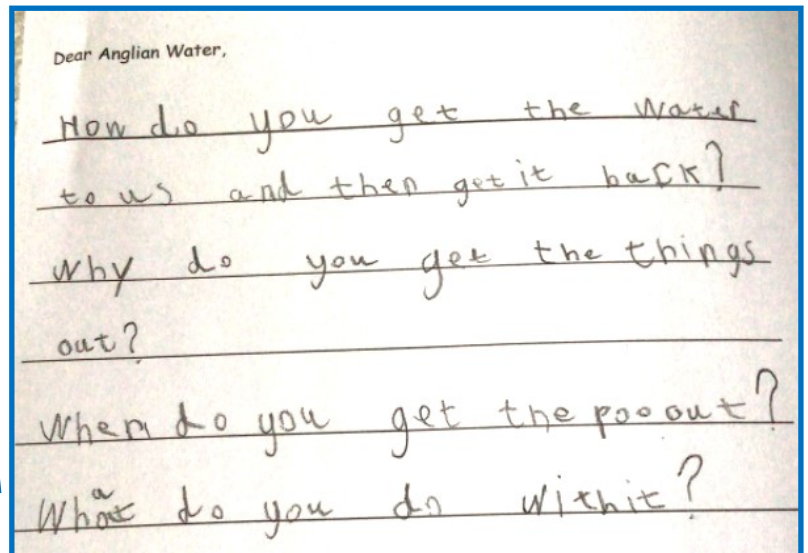 Dear Anglian Water,
How do you get the water
to us and then get it back?
Why do you get the things
out?
When do you get the poo out?
What do you do with it?